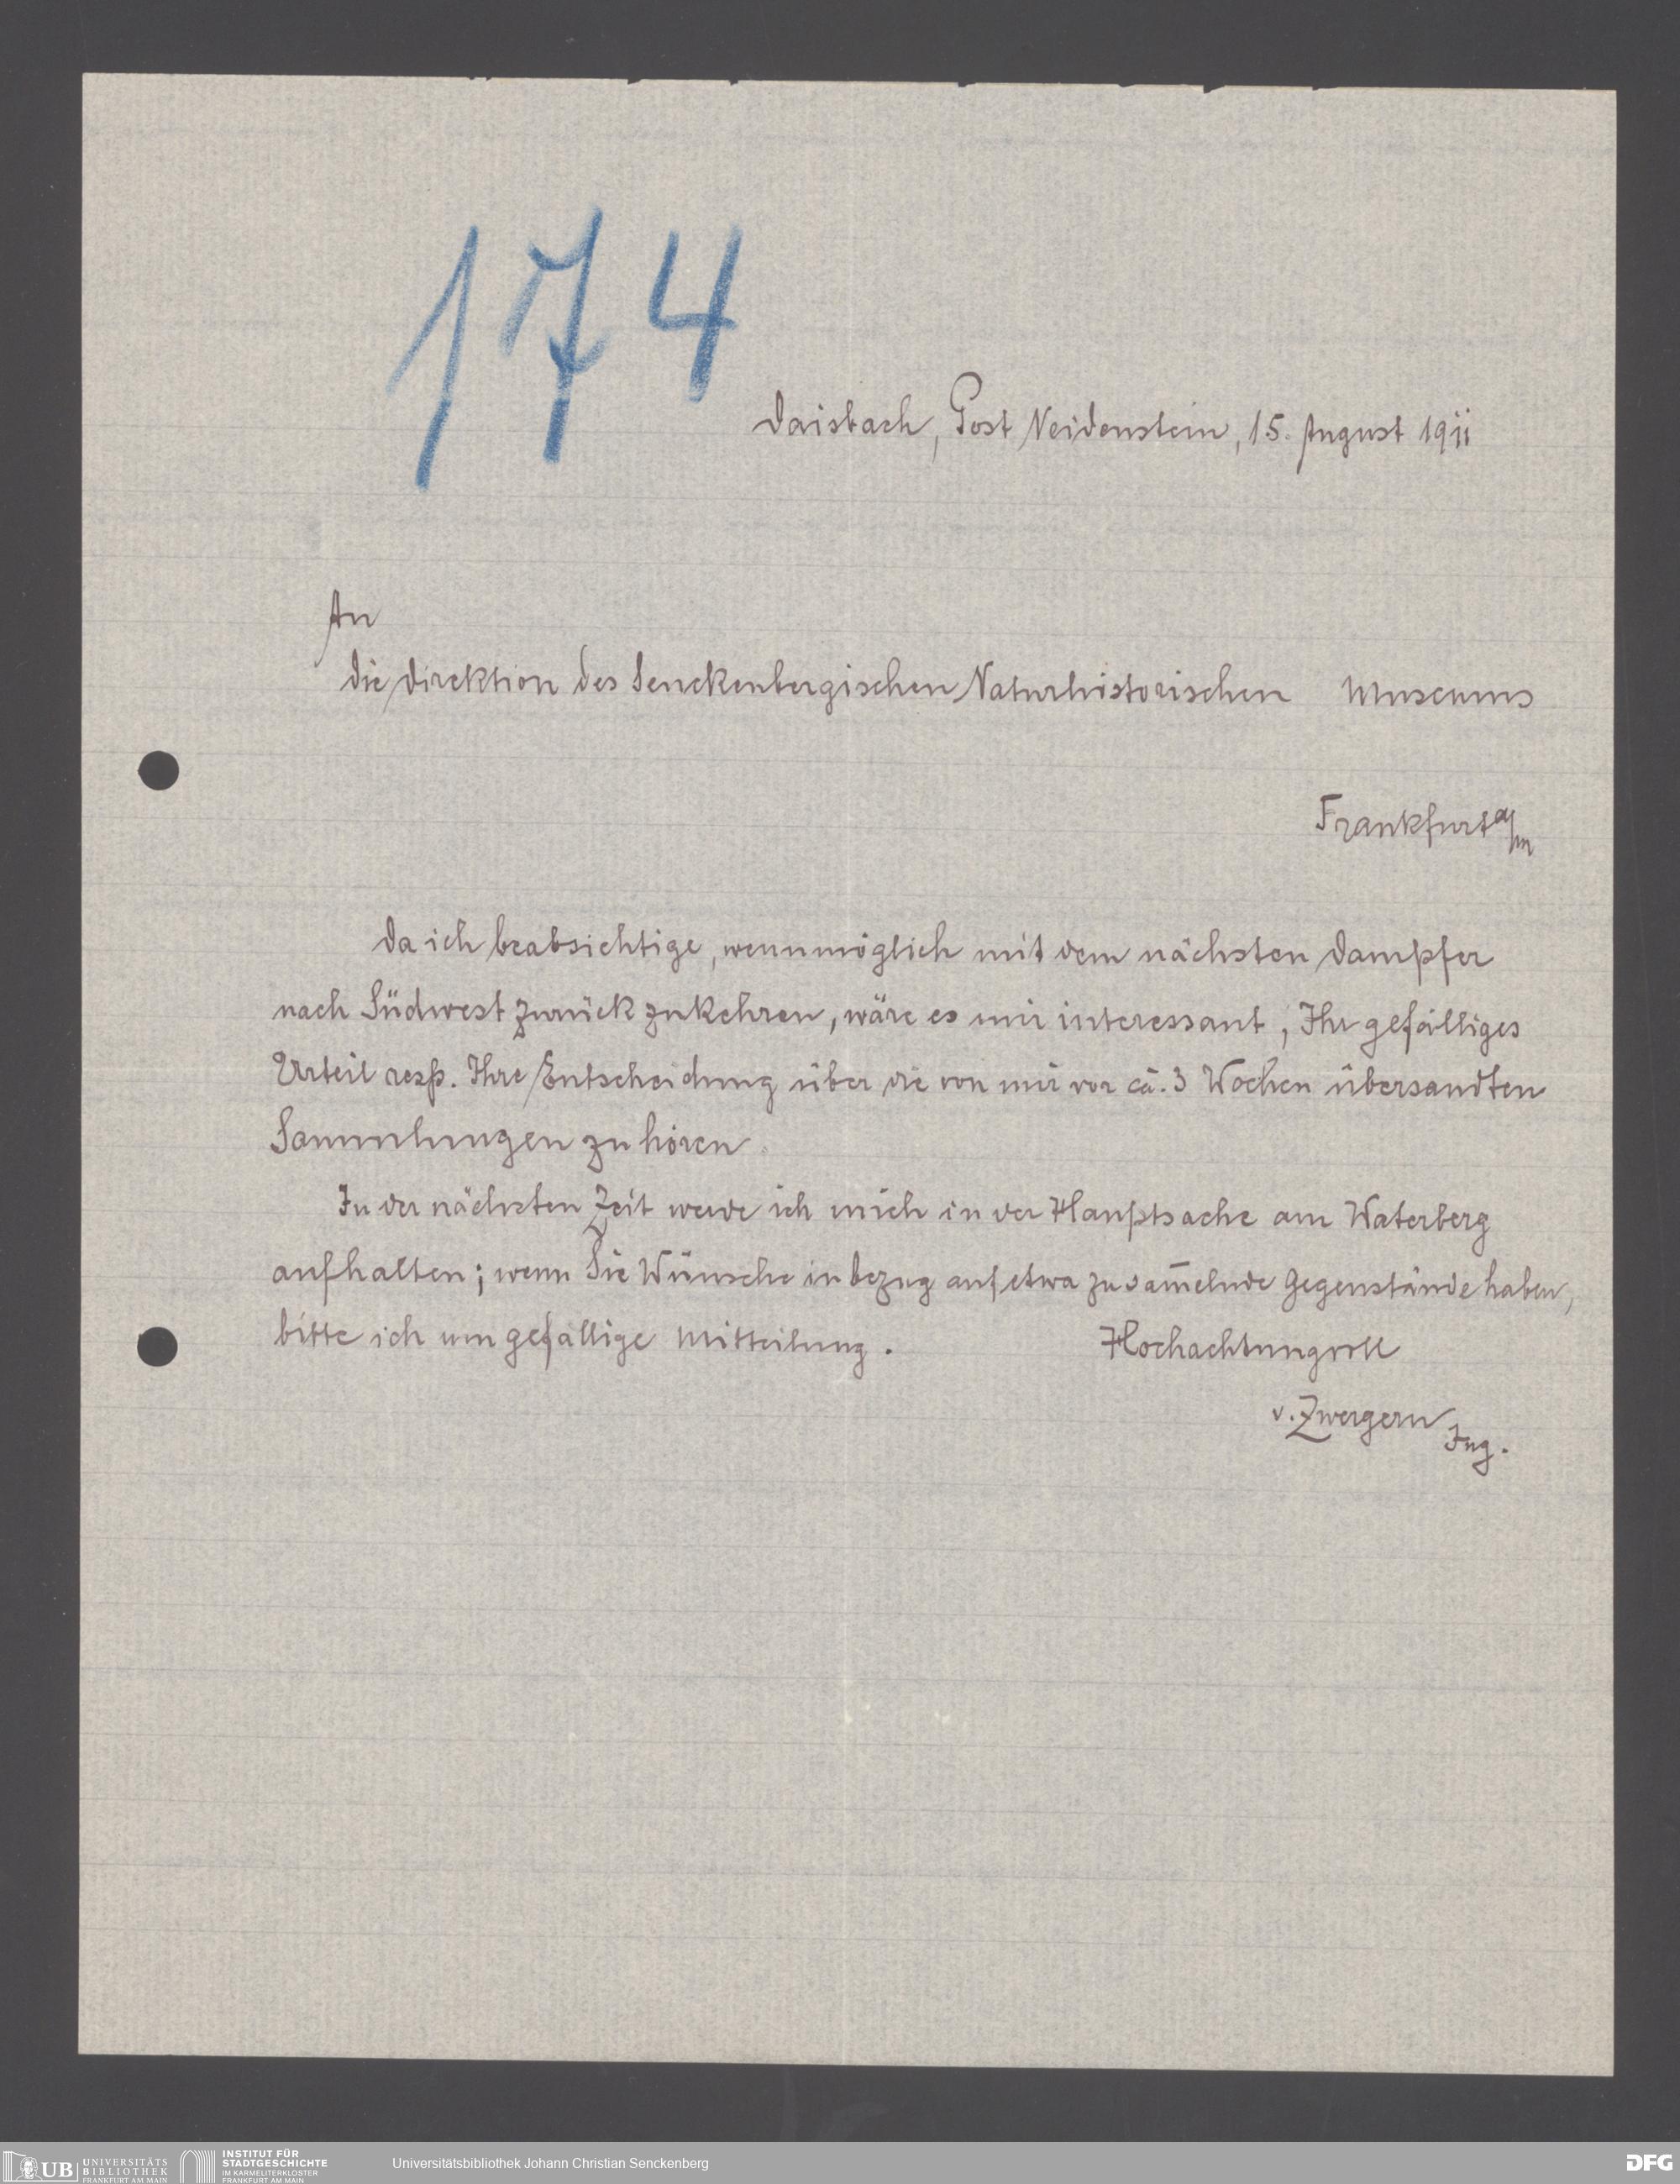 174
Daisbach, Post Neidenstein, 15. August 1911
An
die Direktion des Senckenbergischen Naturhistorischen Museums
Frankfurt a/m
Da ich beabsichtige, wennmöglich mit dem nächsten Dampfer
nach Südwest zurückzukehren, wäre es mir interessant, Ihr gefälliges
Urteil resp. Ihre Entscheidung über die von mir vor ca. 3 Wochen übersandten
Sammlungen zu hören.
In der nächsten Zeit werde ich mich in der Hauptsache am Waterberg
aufhalten; wenn Sie Wünsche in bezug auf etwa zu sam̅elnde Gegenstände haben,
bitte ich um gefällige Mitteilung. Hochachtungvoll
v. Zwergern Ing.
UB UNIVERSITÄTS BIBLIOTHEK FRANKFURT AM MAIN
INSTITUT FÜR STADTGESCHICHTE IM KARMELITERKLOSTER FRANKFURT AM MAIN
Universitätsbibliothek Johann Christian Senckenberg
DFG